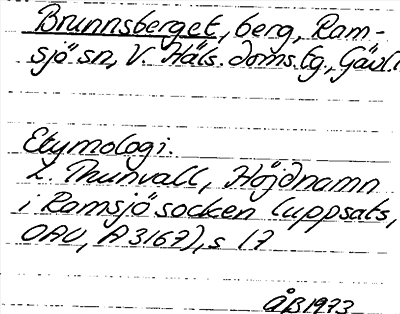 Brunnsberget, berg, Ram-
sjö sn, V. Häls. doms.tg., Gävl.l
Etymologi.
L. Thunvall, Höjdnamn
i Ramsjö socken (uppsats,
OAU, A 3167), s 17
ÅB 1973